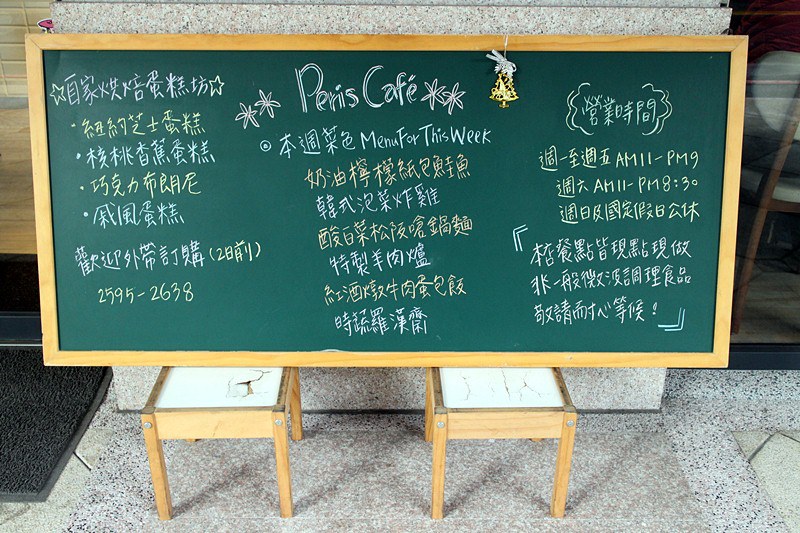 ☆自家烘焙蛋糕坊☆
・紐約芝士蛋糕
・核桃香蕉蛋糕
・巧克力布朗尼
・戚風蛋糕
歡迎外帶訂購(2日前)
2595-2638
Peris Café
◎本週菜色 Menu For This Week
奶油檸檬紙包鮭魚
韓式泡菜炸雞
酸白菜松阪嗆鍋麵
特製羊肉爐
紅酒燉牛肉蛋包飯
時蔬羅漢齋
營業時間
週一至週五 AM11-PM9
週六 AM11-PM8:30
週日及國定假日公休
『本店餐點皆現點現做
非一般微波調理食品
敬請耐心等候!』